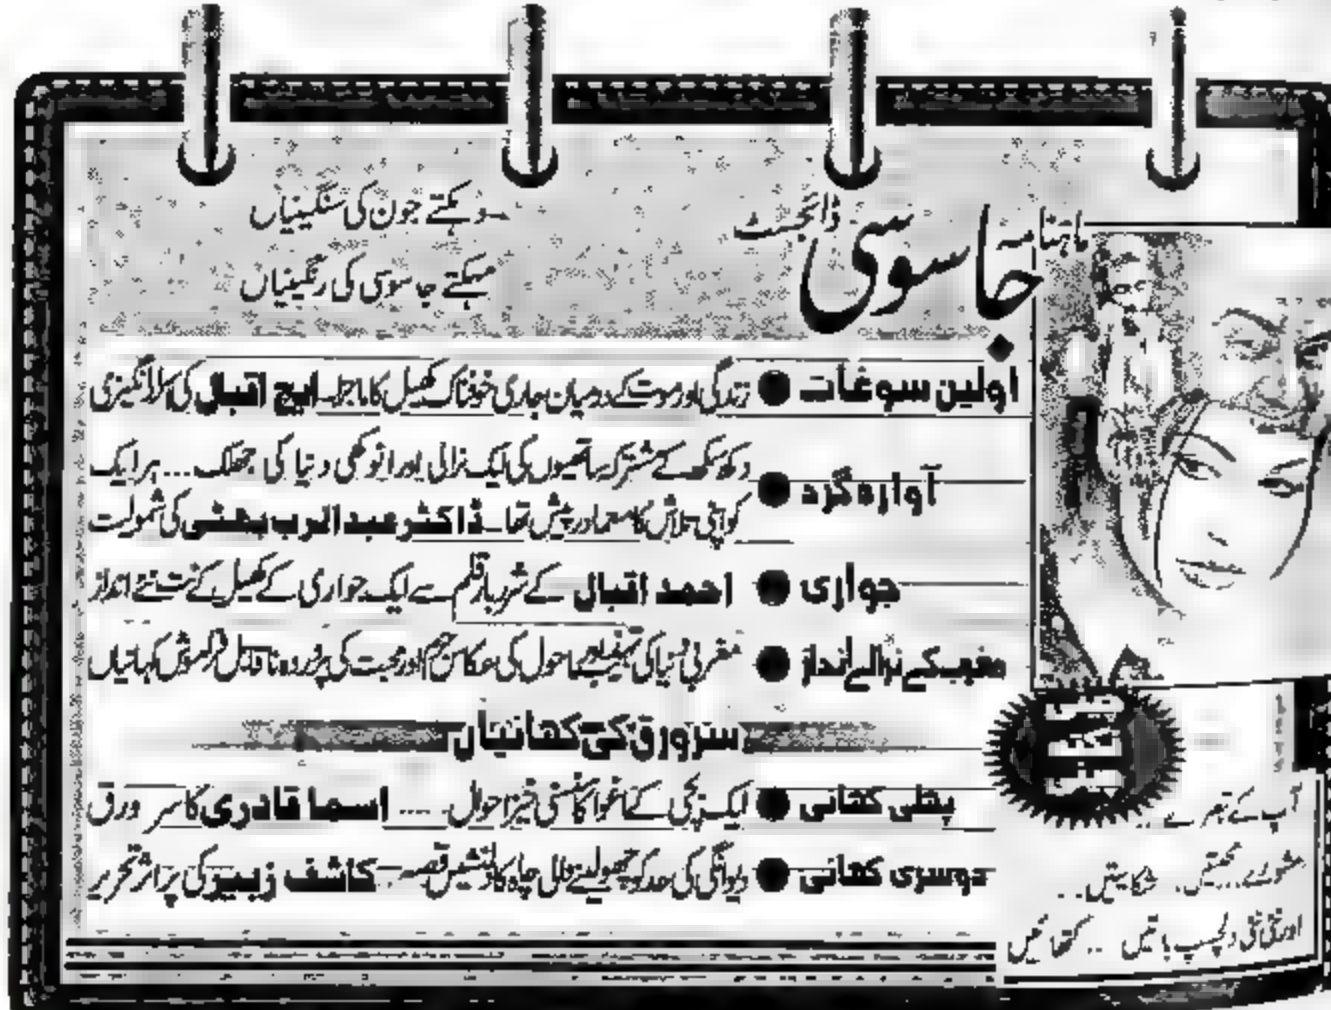 ماہنامہ جاسوسی ڈائجسٹ
دہکتے جون کی سنگینیاں
مہکتے جاسوسی کی رنگینیاں
اولین سوغات ● زندگی اور موت کے درمیان جاری خوفناک کھیل کا ماجرا۔ ایچ اقبال کی
آوارہ گرد ● دکھ سکھ کے مشترکہ ساتھیوں کی ایک نرالی اور انوکھی دنیا کی جھلک... ہر ایک
کو اپنی تلاش کا معما درپیش تھا۔ ڈاکٹر عبدالرب بھٹی کی شمولیت
جواری ● احمد اقبال کے شہ بار قلم سے ایک جواری کے کھیل کے نت نئے انداز
مغرب کے نرالے انداز ● مغربی دنیا کی تہذیب اور ماحول کی عکاس جرم اور محبت کی ناقابل فراموش کہانیاں
سرورق کی کہانیاں
پہلی کہانی ● ایک بچی کے اغوا کا سنسنی خیز احوال .... اسما قادری کا سر ورق
دوسری کہانی ● دیوانگی کی حد کو چھو لینے والی چاہ کا دلنشیں قصہ۔ کاشف زبیر کی پر اثر تحریر
آپ کے تبصرے ..
مشورے.. محبتیں، شکایتیں..
اور نئی نئی دلچسپ باتیں .. کتھائیں